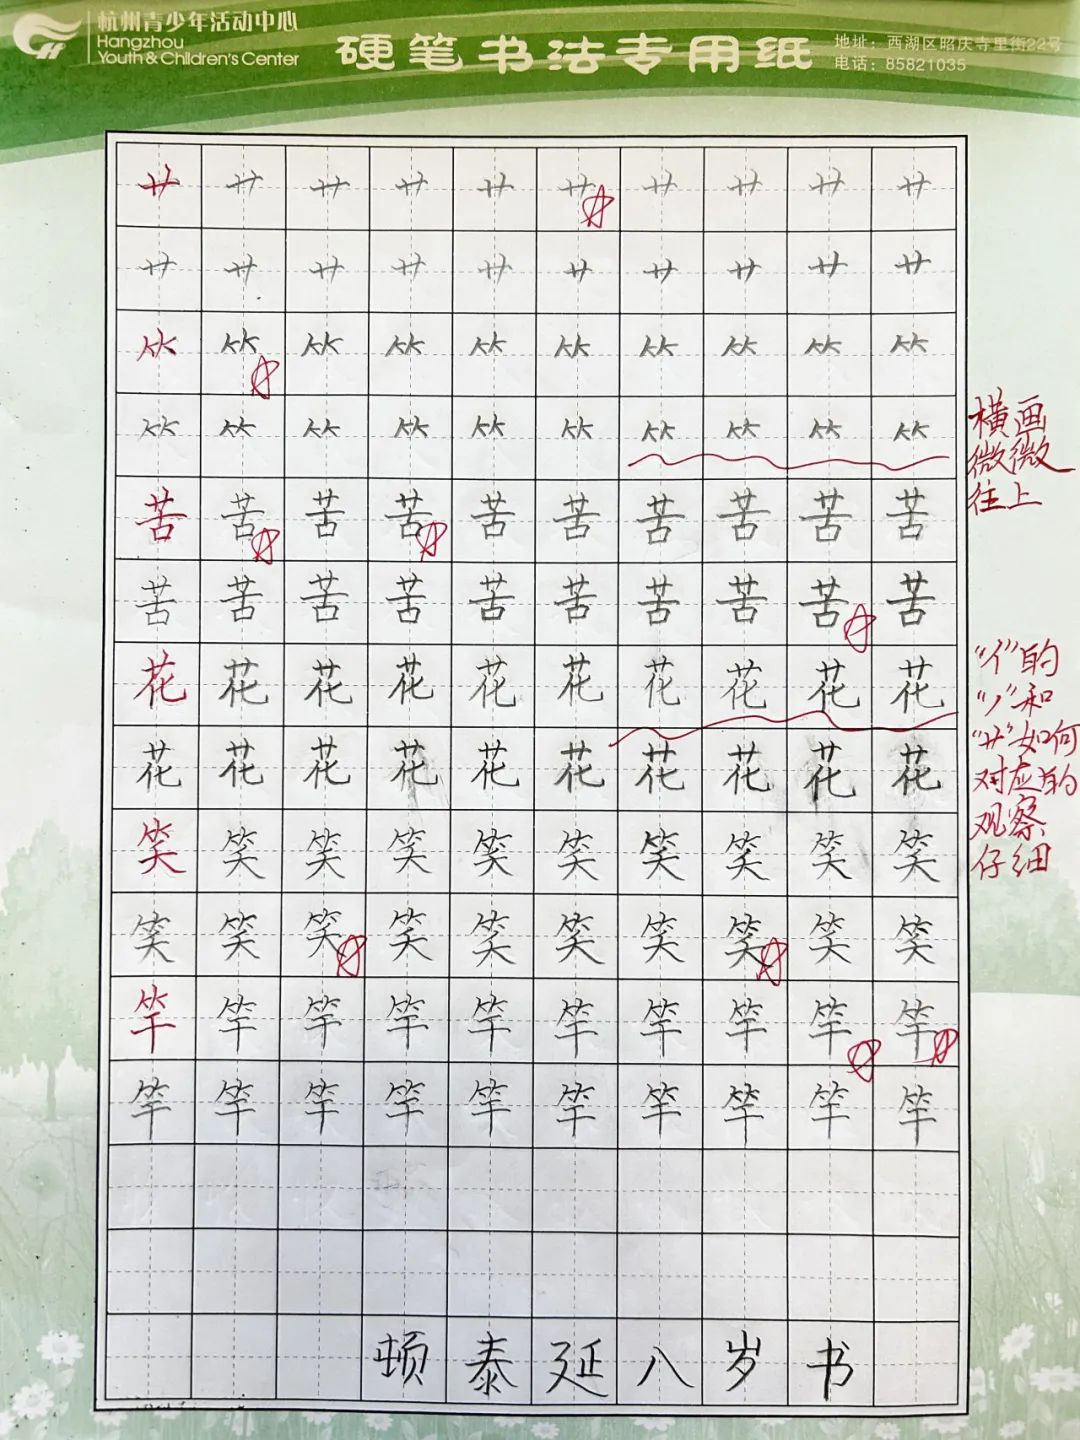 杭州青少年活动中心
Hangzhou
Youth & Children's Center
硬笔书法专用纸
地址：西湖区昭庆寺里街22号
电话：85821035
艹 艹 艹 艹 艹 艹 艹 艹 艹 艹
艹 艹 艹 艹 艹 艹 艹 艹 艹 艹
⺮ ⺮ ⺮ ⺮ ⺮ ⺮ ⺮ ⺮ ⺮ ⺮
⺮ ⺮ ⺮ ⺮ ⺮ ⺮ ⺮ ⺮ ⺮ ⺮
横画
微微
往上
苦 苦 苦 苦 苦 苦 苦 苦 苦 苦
苦 苦 苦 苦 苦 苦 苦 苦 苦 苦
花 花 花 花 花 花 花 花 花 花
花 花 花 花 花 花 花 花 花 花
"亻"的
"丿"和
"艹"如何
对应的
观察
仔细
笑 笑 笑 笑 笑 笑 笑 笑 笑 笑
笑 笑 笑 笑 笑 笑 笑 笑 笑 笑
竿 竿 竿 竿 竿 竿 竿 竿 竿 竿
竿 竿 竿 竿 竿 竿 竿 竿 竿 竿
顿泰延八岁书